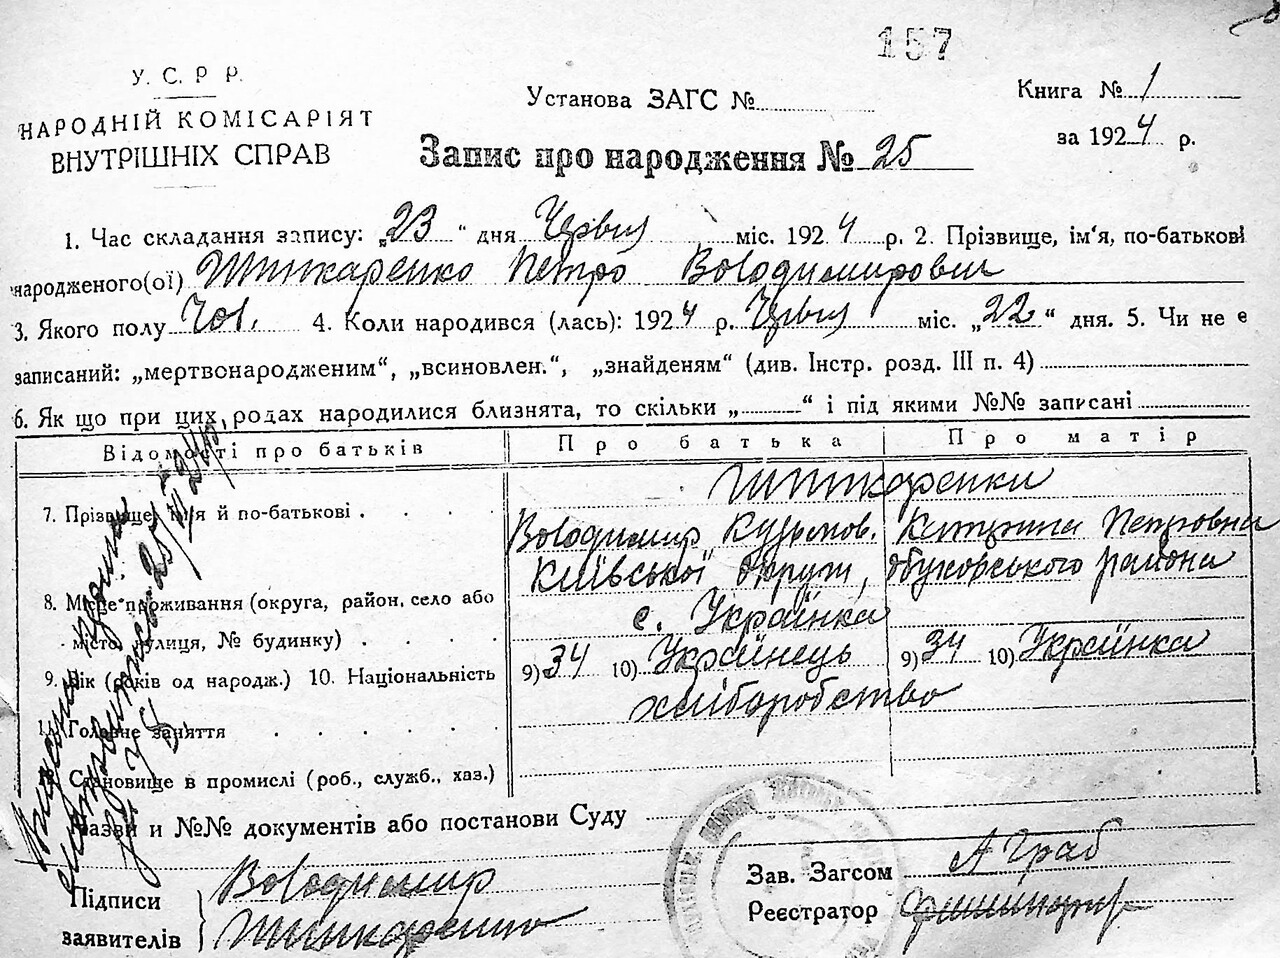 157
У. С. Р Р.
НАРОДНІЙ КОМІСАРІЯТ
ВНУТРІШНІХ СПРАВ
Установа ЗАГС №
Книга № 1
за 1924 р.
Запис про народження № 25
1. Час складання запису: „23 “ дня Червня міс. 1924 р. 2. Прізвище, ім'я, по-батькові
народженого(ої) Шпикаренко Петро Володимирович
3. Якого полу Чол. 4. Коли народився (лась): 1924 р. Червня міс. „22“ дня. 5. Чи не є
записаний: „мертвонародженим“, „всиновлен.“, „знайденям“ (див. Інстр. розд. III п. 4)
6. Як що при цих родах народилися близнята, то скільки „ “ і під якими №№ записані
Відомості про батьків Про батька Про матір
Шпикаренки
7. Прізвище, ім'я й по-батькові
Володимир Кузьмов. Катерина Петровна
Київської округи, Обуховського района
8. Місце проживання (округа, район, село або
с. Українка
місто, вулиця, № будинку)
9. Вік (років од народж.) 10. Національність 9) 34 10) Українець 9) 34 10) Українка
хліборобство
11. Головне заняття
Становище в промислі (роб., служб., хаз.)
Назви и №№ документів або постанови Суду
Підписи
заявителів
Володимир
Шпикаренко
Зав. Загсом А Граб
Реєстратор